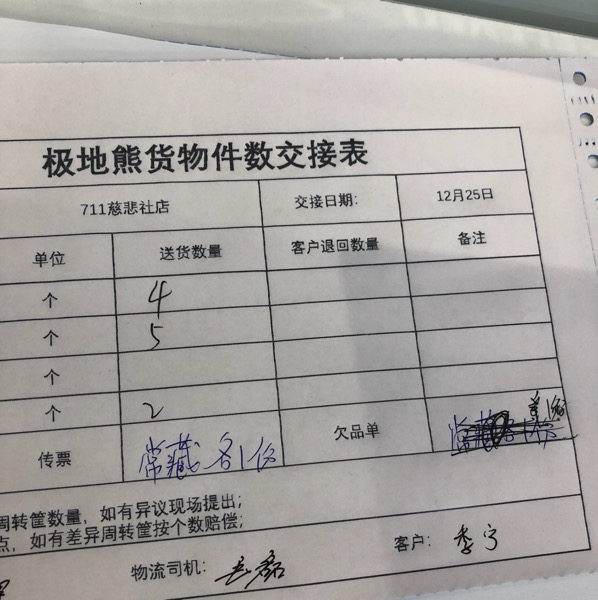 极地熊货物件数交接表
711慈悲社店 交接日期: 12月25日
单位 送货数量 客户退回数量 备注
个 4
个 5
个
个 2
传票 常藏各1份 欠品单
周转筐数量，如有异议现场提出；
点，如有差异周转筐按个数赔偿；
物流司机： 客户： 李宁